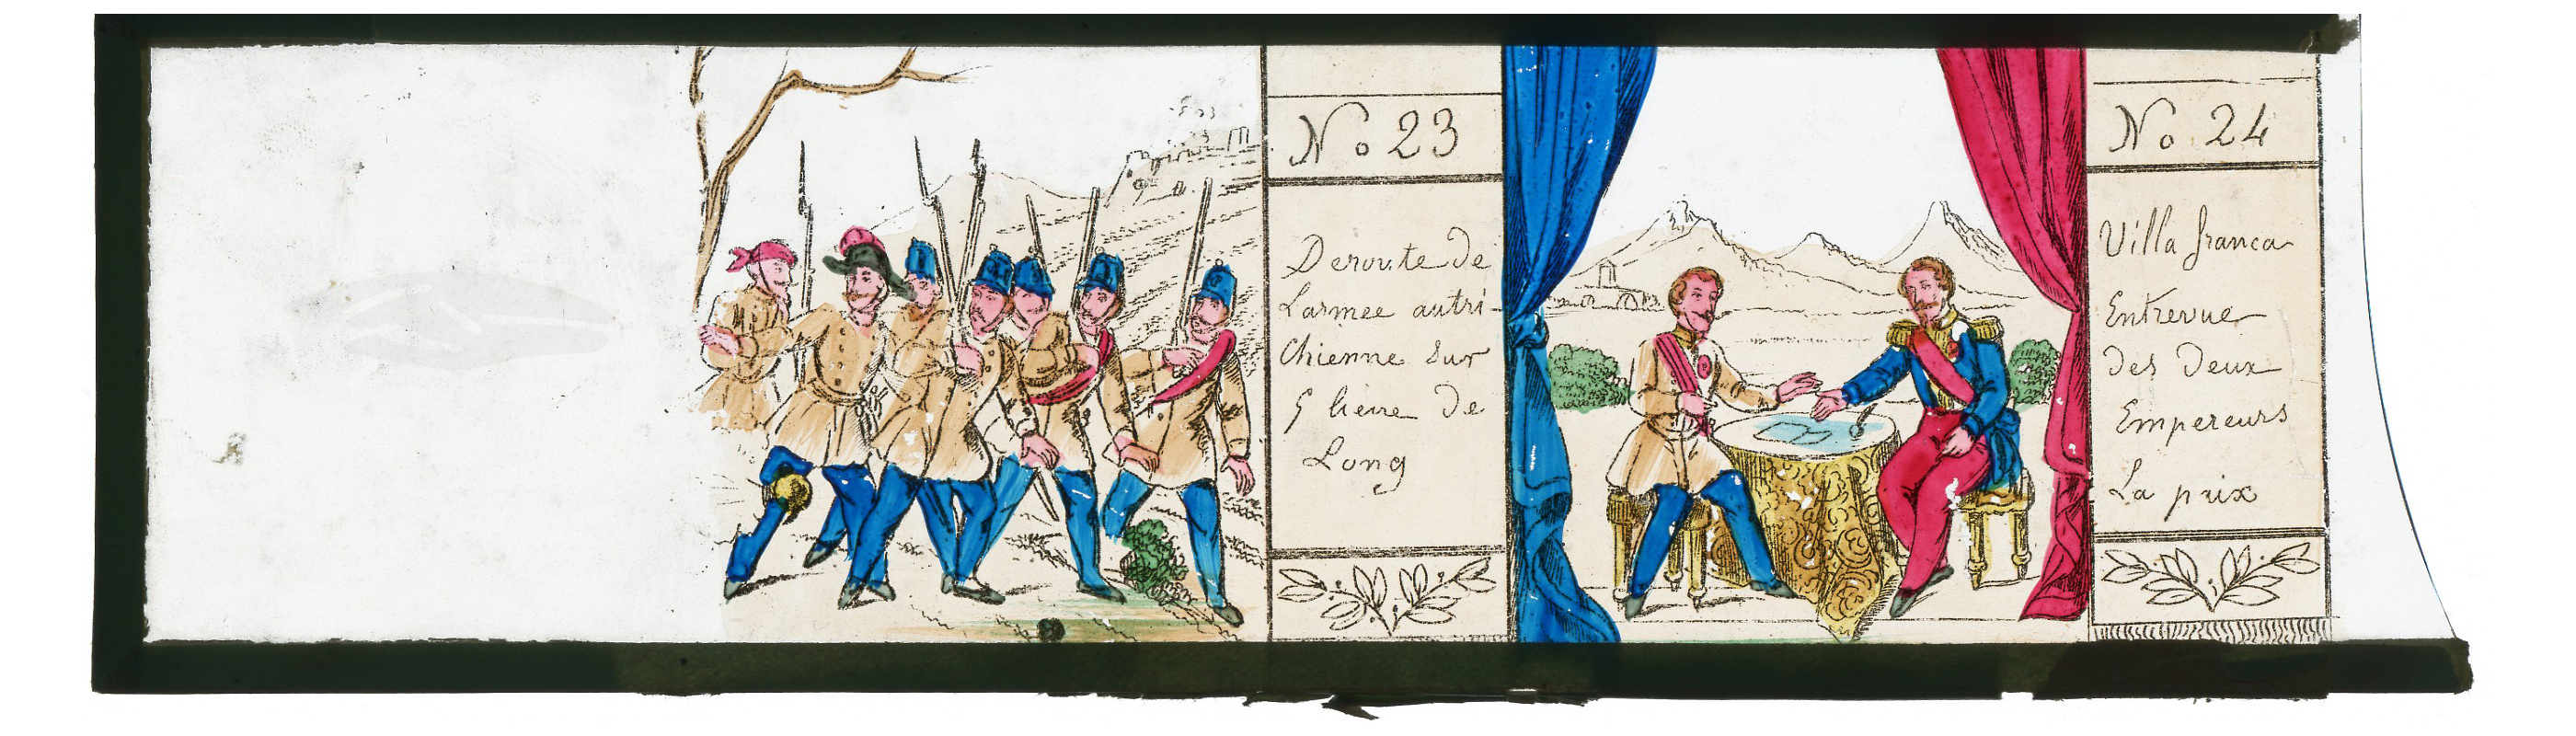 No 23
Deroute de
Larmee autri-
Chienne Sur
5 lieue de
Long
No 24
Villa franca
Entrevue
des deux
Empereurs
La paix